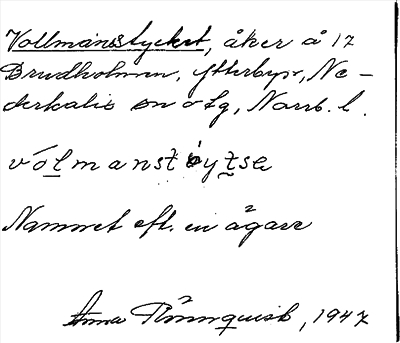 Vollmansstycket, åker å 17
Brudholmen, Ytterbyn, Ne-
derkalix sn o lg, Norrb. l.
vólmanst ytse
Namnet eft. en ägare
Anna Rönnquist, 1947